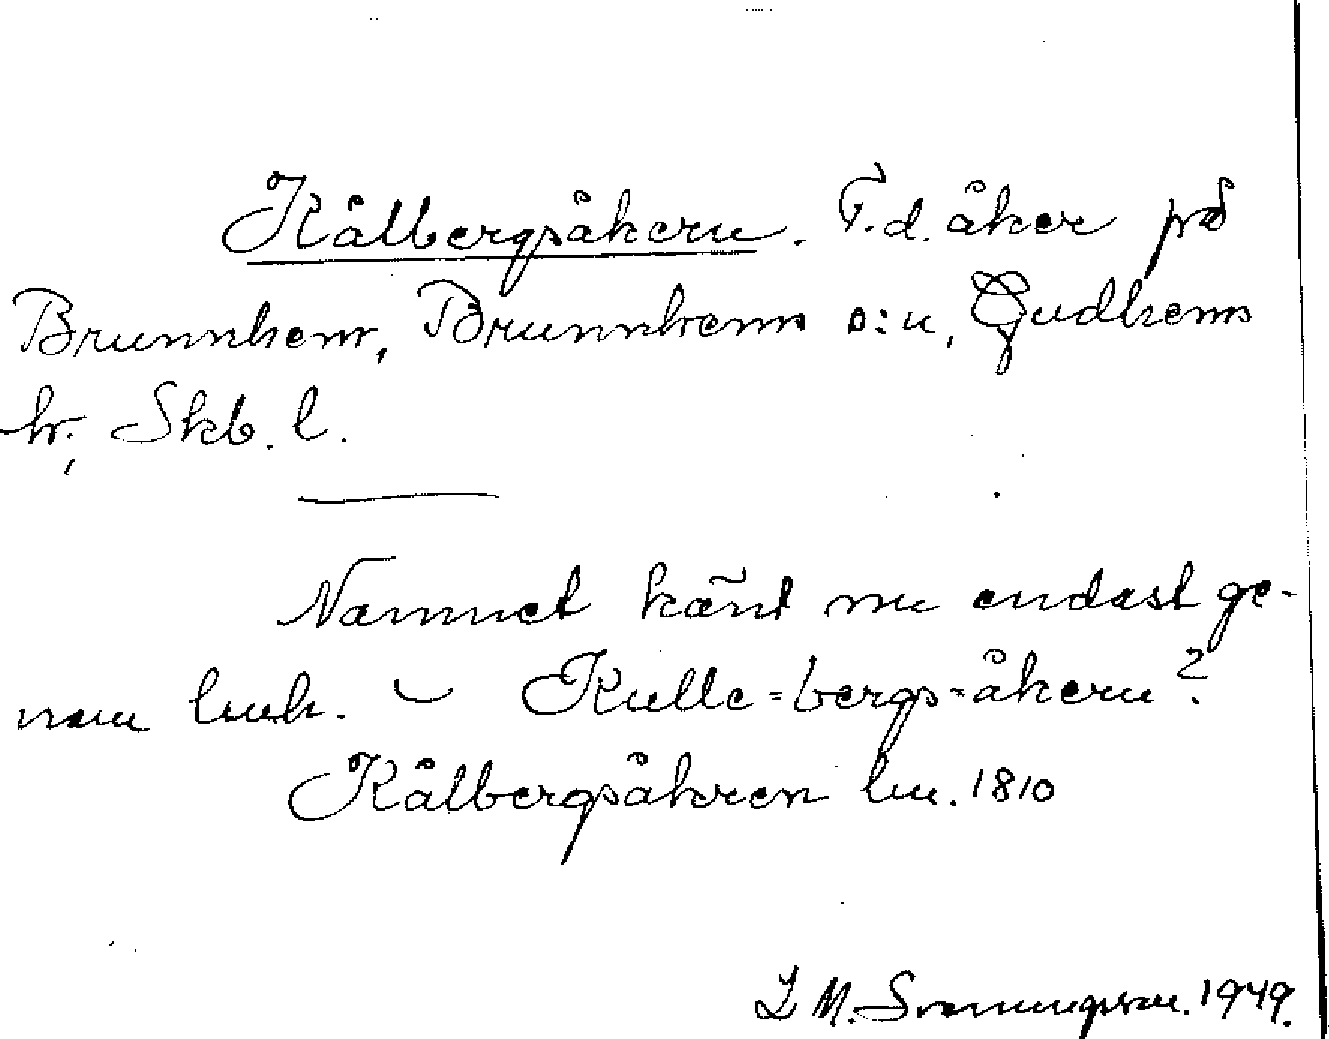 Kålbergsåkern. F.d. åker på
Brunnhem, Brunnhems s:n, Gudhems
hr, Skb. l.
Namnet känt nu endast ge-
nom lmh. – Kulle-bergs-åkern?
Kålbergsåkren lm. 1810
M. Svenungsson. 1949.